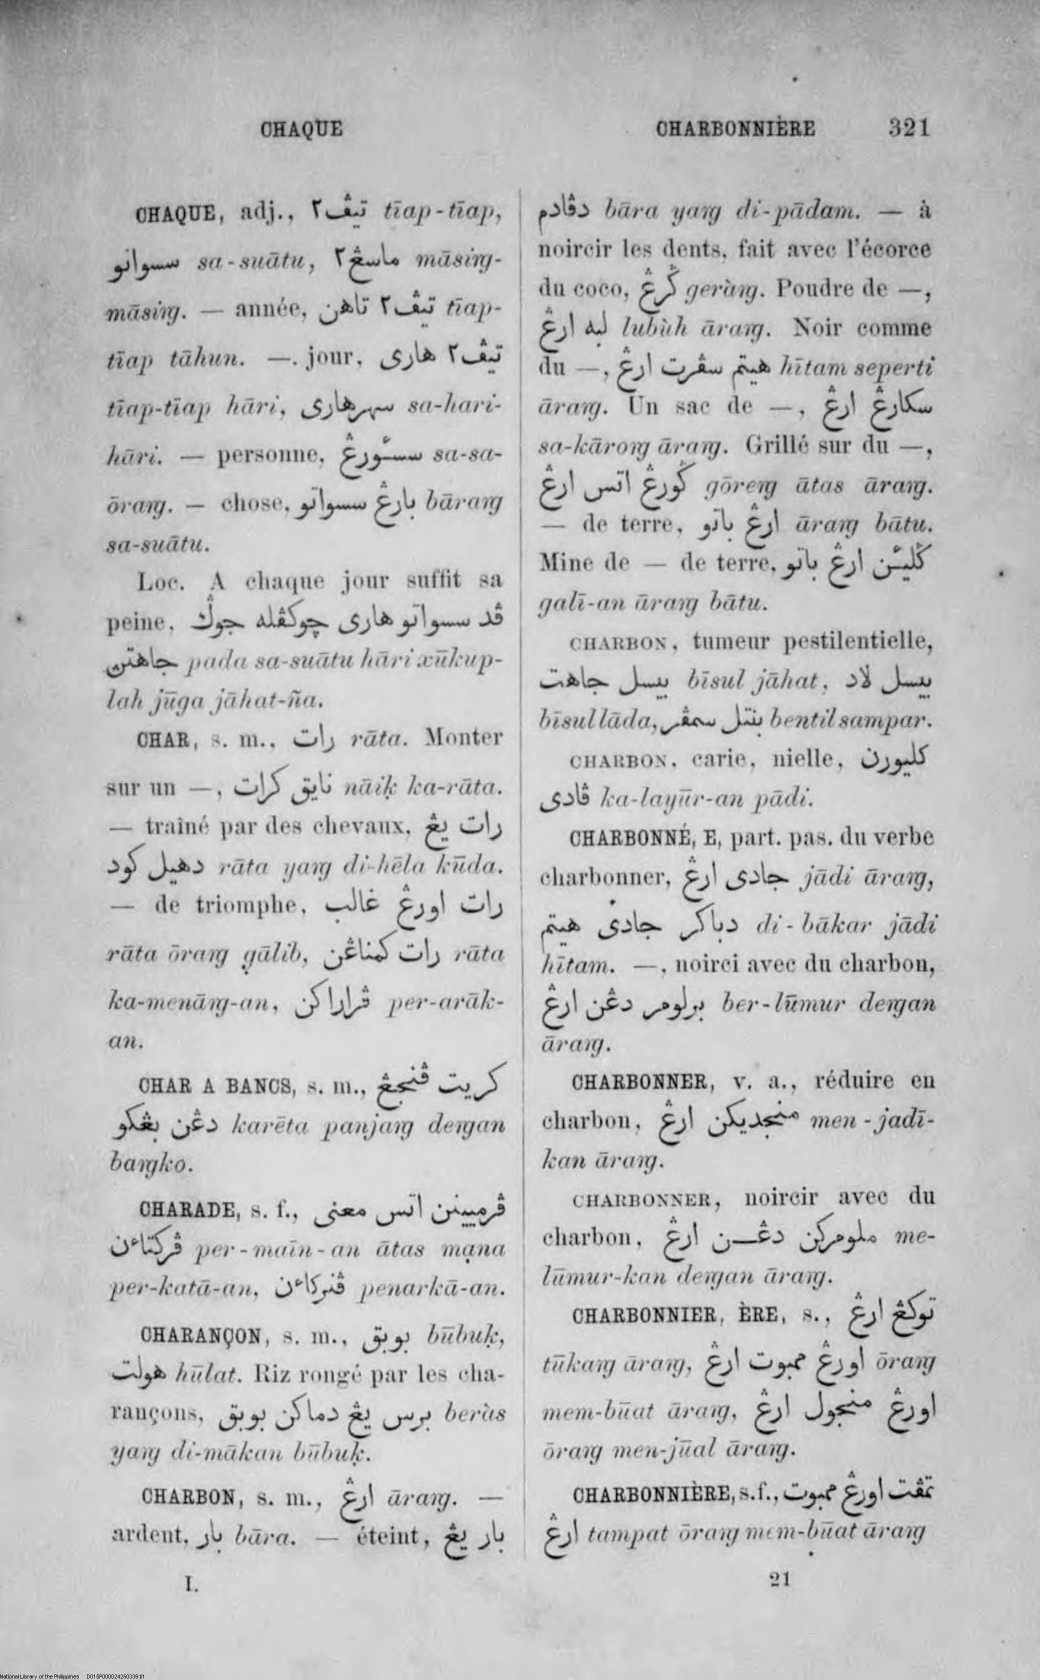 CHAQUE
CHARBONNIÈRE 321
CHAQUE, adj., تيڤ٢ tīap-tīap,
سسواتو sa-suātu, ماسڠ٢ māsiŋ-
māsiŋ. — année, تيڤ٢ تاهن tīap-
tīap tāhun. —. jour, تيڤ٢ هاري
tīap-tīap hāri, سهرهاري sa-hari-
hāri. — personne, سسئورڠ sa-sa-
ōraŋ. — chose, بارڠ سسواتو bāraŋ
sa-suātu.
Loc. A chaque jour suffit sa
peine, ڤد سسواتو هاري چوكڤله جوݢ
جاهتڽ pada sa-suātu hāri xūkup-
lah jūga jāhat-ña.
CHAR, s. m., رات rāta. Monter
sur un —, نايق كرات nāiḳ ka-rāta.
— traîné par des chevaux, رات يڠ
دهيل كود rāta yaŋ di-hēla kūda.
— de triomphe, رات اورڠ غالب
rāta ōraŋ gālib, رات كمناڠن rāta
ka-menāŋ-an, ڤراراكن per-arāk-
an.
CHAR A BANCS, s. m., كريت ڤنجڠ
دڠن بڠكو karēta panjaŋ deŋan
baŋko.
CHARADE, s. f., ڤرمييننن اتس معنى
ڤركتاءن per-maīn-an ātas mạna
per-katā-an, ڤنركاءن penarkā-an.
CHARANÇON, s. m., بوبق būbuḳ,
هولت hūlat. Riz rongé par les cha-
rançons, برس يڠ دماكن بوبق beràs
yaŋ di-mākan būbuḳ.
CHARBON, s. m., ارڠ āraŋ. —
ardent, بار bāra. — éteint, بار يڠ
I.
دڤادم bāra yaŋ di-pādam. — à
noircir les dents, fait avec l'écorce
du coco, ݢرڠ geràŋ. Poudre de —,
لبه ارڠ lubùh āraŋ. Noir comme
du —, هيتم سڤرت ارڠ hītam seperti
āraŋ. Un sac de —, سكارڠ ارڠ
sa-kāroŋ āraŋ. Grillé sur du —,
ݢورڠ اتس ارڠ gōreŋ ātas āraŋ.
— de terre, ارڠ باتو āraŋ bātu.
Mine de — de terre, ݢليئن ارڠ باتو
galī-an āraŋ bātu.
CHARBON, tumeur pestilentielle,
بيسل جاهت bīsul jāhat, بيسل لاد
bīsul lāda, بنتل سمڤر bentil sampar.
CHARBON, carie, nielle, كليورن
ڤادي ka-layūr-an pādi.
CHARBONNÉ, E, part. pas. du verbe
charbonner, جادي ارڠ jādi āraŋ,
دباكر جادي هيتم di-bākar jādi
hītam. —, noirci avec du charbon,
برلومر دڠن ارڠ ber-lūmur deŋan
āraŋ.
CHARBONNER, v. a., réduire en
charbon, منجديكن ارڠ men-jadī-
kan āraŋ.
CHARBONNER, noircir avec du
charbon, ملومركن دڠن ارڠ me-
lūmur-kan deŋan āraŋ.
CHARBONNIER, ÈRE, s., توكڠ ارڠ
tūkaŋ āraŋ, اورڠ ممبوت ارڠ ōraŋ
mem-būat āraŋ, اورڠ منجول ارڠ
ōraŋ men-jūal āraŋ.
CHARBONNIÈRE, s.f., تمڤت اورڠ ممبوت
ارڠ tampat ōraŋ mem-būat āraŋ
21
National Library of the Philippines